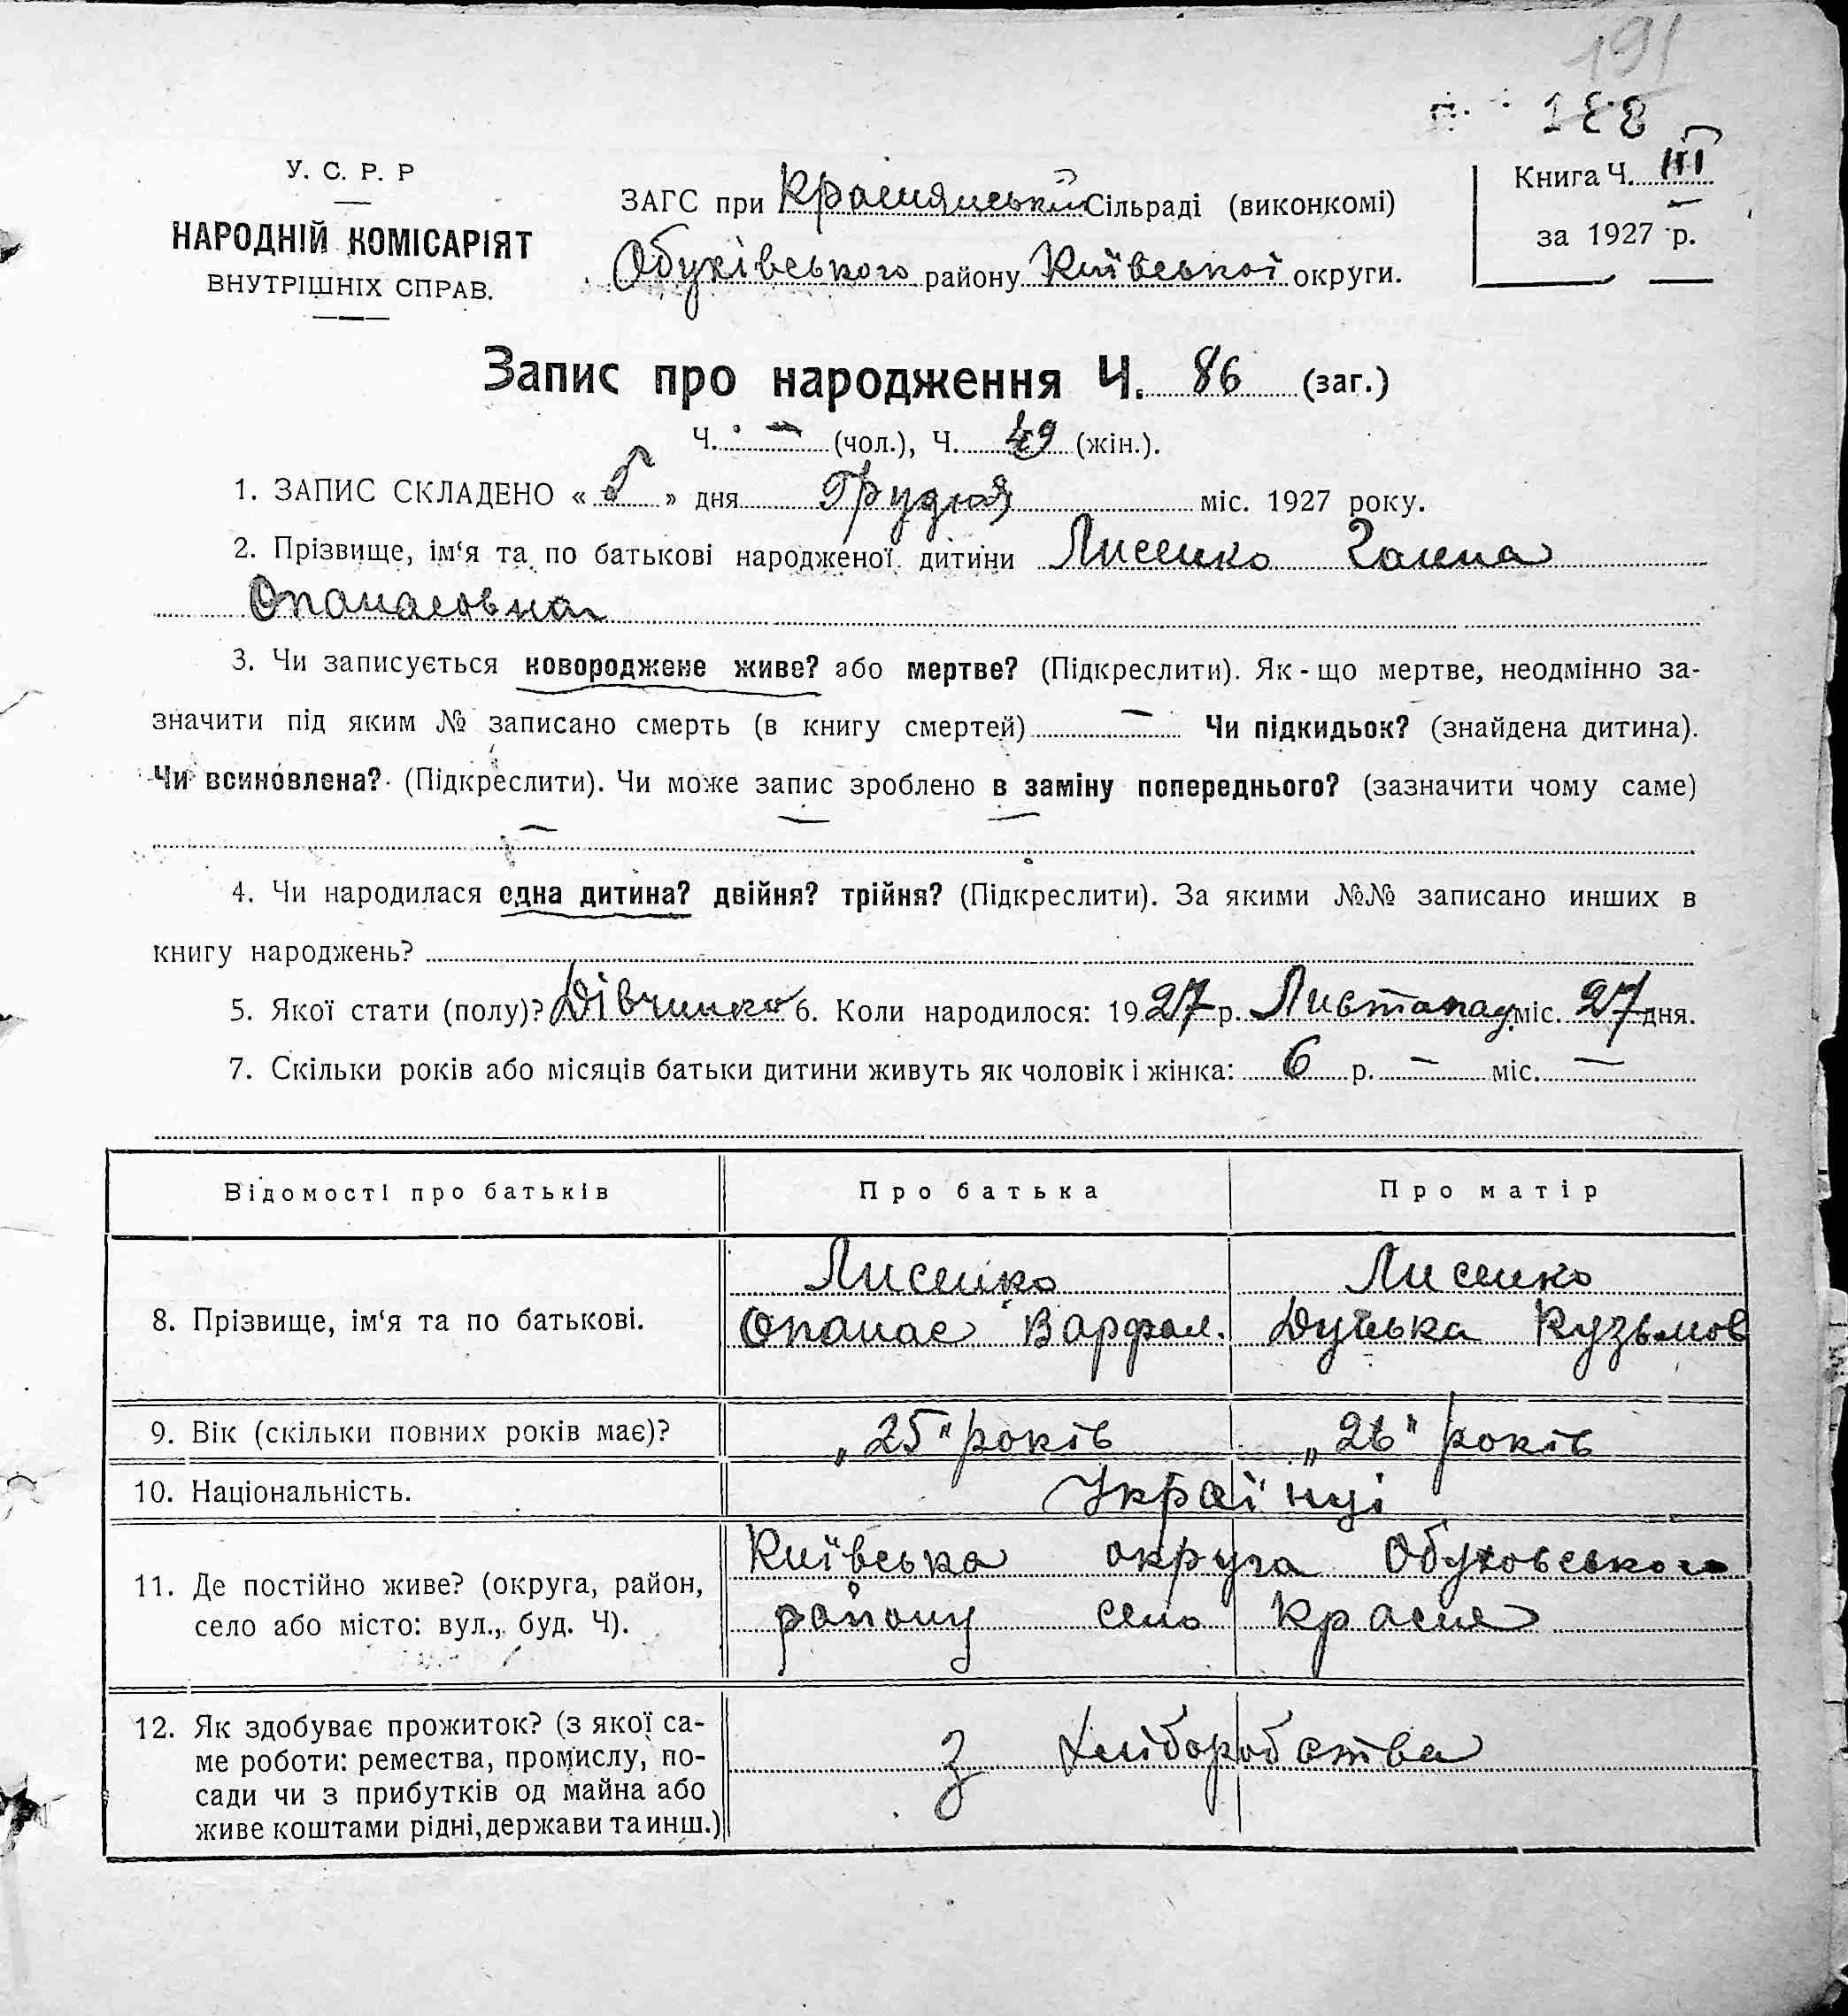 191
188
У. С. Р. Р
НАРОДНІЙ КОМІСАРІЯТ
ВНУТРІШНІХ СПРАВ.
ЗАГС при Краснянській Сільраді (виконкомі)
Обухівського району Київської округи.
Книга Ч. III
за 1927 р.
Запис про народження Ч. 86 (заг.)
Ч. — (чол.), Ч. 49 (жін.).
1. ЗАПИС СКЛАДЕНО « » дня Грудня міс. 1927 року.
2. Прізвище, ім‘я та по батькові народженої дитини Лисенко Ганна
Опанасовна
3. Чи записується новороджене живе? або мертве? (Підкреслити). Як-що мертве, неодмінно за-
значити під яким № записано смерть (в книгу смертей) — Чи підкидьок? (знайдена дитина).
Чи всиновлена? (Підкреслити). Чи може запис зроблено в заміну попереднього? (зазначити чому саме)
4. Чи народилася една дитина? двійня? трійня? (Підкреслити). За якими №№ записано инших в
книгу народжень?
5. Якої стати (полу)? Дівчинка 6. Коли народилося: 1927 р. Листопад міс. 27 дня.
7. Скільки років або місяців батьки дитини живуть як чоловік і жінка: 6 р. — міс. —
Відомості про батьків Про батька Про матір
8. Прізвище, ім‘я та по батькові.
Лисенко
Опанас Варфол.
Лисенко
Дунька Кузьмов
9. Вік (скільки повних років має)? „25" років „26" років
10. Національність. Українці
11. Де постійно живе? (округа, район,
село або місто: вул., буд. Ч).
Київська округа Обуховського
району село Красне
12. Як здобуває прожиток? (з якої са-
ме роботи: ремества, промислу, по-
сади чи з прибутків од майна або
живе коштами рідні, держави та инш.)
З Хліборобства